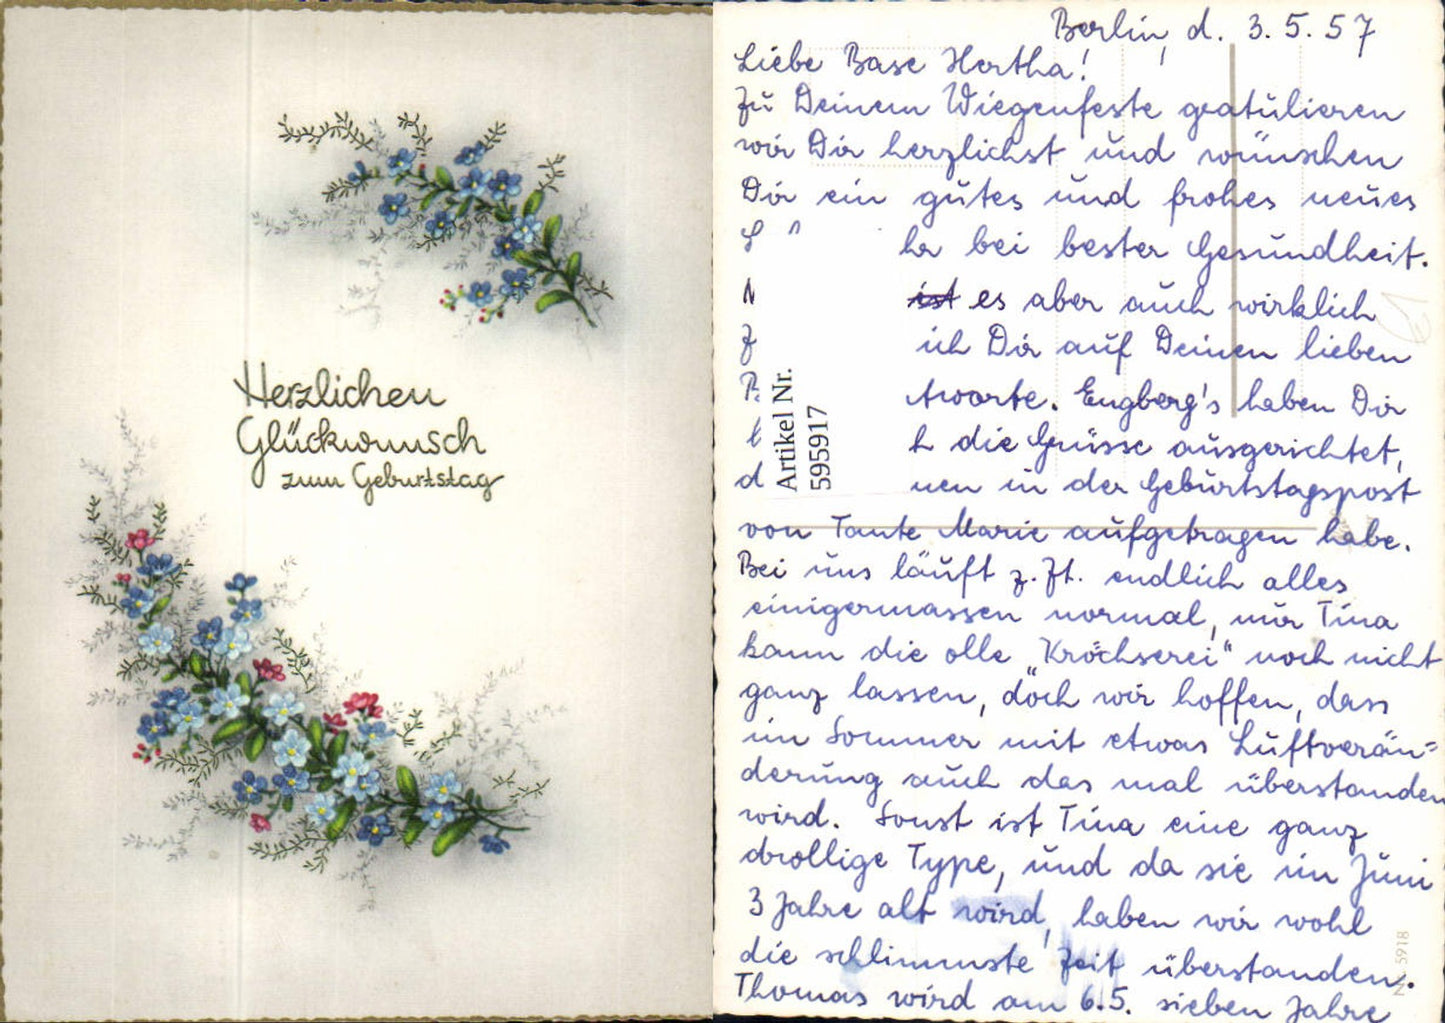 Herzlichen
Glückwunsch
zum Geburtstag
Berlin, d. 3.5.57
Liebe Base Hertha!
Zu Deinem Wiegenfeste gratulieren
wir Dir herzlichst und wünschen
Dir ein gutes und frohes neues
bei bester Gesundheit.
ist es aber auch wirklich
ich Dir auf Deinen lieben
tworte. Engberg's haben Dir
h die Grüsse ausgerichtet,
d nen in der Geburtstagspost
von Tante Marie aufgetragen habe.
Bei uns läuft z.Zt. endlich alles
einigermassen normal, nur Tina
kann die olle „Kröchserei" noch nicht
ganz lassen, doch wir hoffen, dass
im Sommer mit etwas Luftverän=
derung auch das mal überstanden
wird. Sonst ist Tina eine ganz
drollige Type, und da sie im Juni
3 Jahre alt wird, haben wir wohl
die schlimmste Zeit überstanden.
Thomas wird am 6.5. sieben Jahre
Artikel Nr.
595917
5918